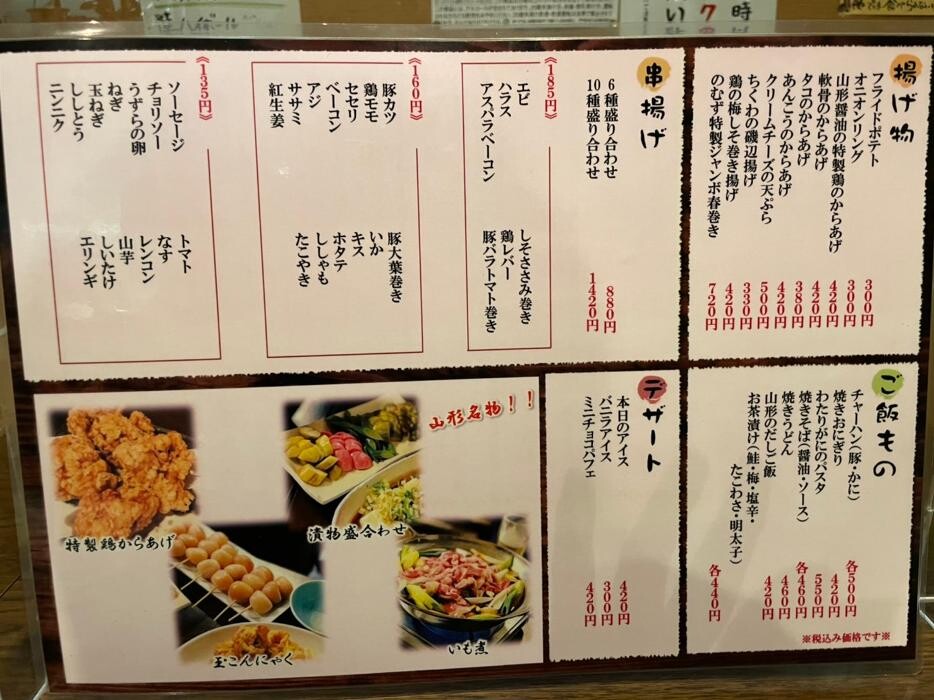 揚げ物
フライドポテト 300円
オニオンリング 300円
山形醤油の特製鶏のからあげ 420円
軟骨のからあげ 420円
タコのからあげ 380円
あんこうのからあげ 420円
クリームチーズの天ぷら 500円
ちくわの磯辺揚げ 330円
鶏の梅しそ巻き揚げ 420円
のむず特製ジャンボ春巻き 720円
串揚げ
6種盛り合わせ 880円
10種盛り合わせ 1420円
《185円》
エビ
ハラス
アスパラベーコン
しそささみ巻き
鶏レバー
豚バラトマト巻き
《160円》
豚カツ
鶏モモ
セセリ
ベーコン
アジ
ササミ
紅生姜
豚大葉巻き
いか
キス
ホタテ
ししゃも
たこやき
《135円》
ソーセージ
チョリソー
うずらの卵
ねぎ
玉ねぎ
ししとう
ニンニク
トマト
なす
レンコン
山芋
しいたけ
エリンギ
ご飯もの
チャーハン(豚・かに) 各500円
焼きおにぎり 420円
わたりがにのパスタ 550円
焼きそば(醤油・ソース) 各460円
焼きうどん 460円
山形のだしご飯 420円
お茶漬け(鮭・梅・塩辛・
たこわさ・明太子) 各440円
※税込み価格です※
デザート
本日のアイス 420円
バニラアイス 300円
ミニチョコパフェ 420円
山形名物!!
特製鶏からあげ
漬物盛合わせ
玉こんにゃく
いも煮